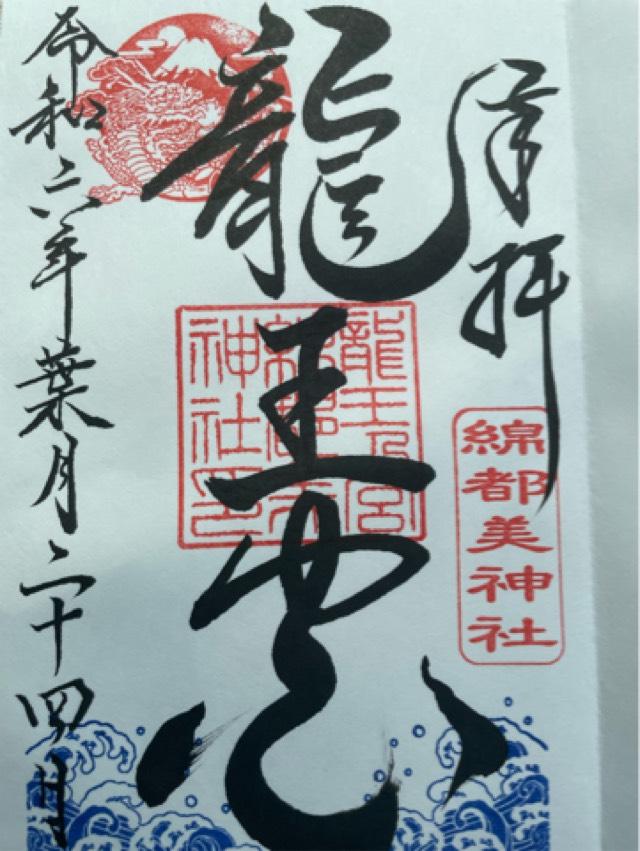 奉拝
綿都美神社
龍王
龍王宮
綿都美
神社印
令和六年葉月二十四日